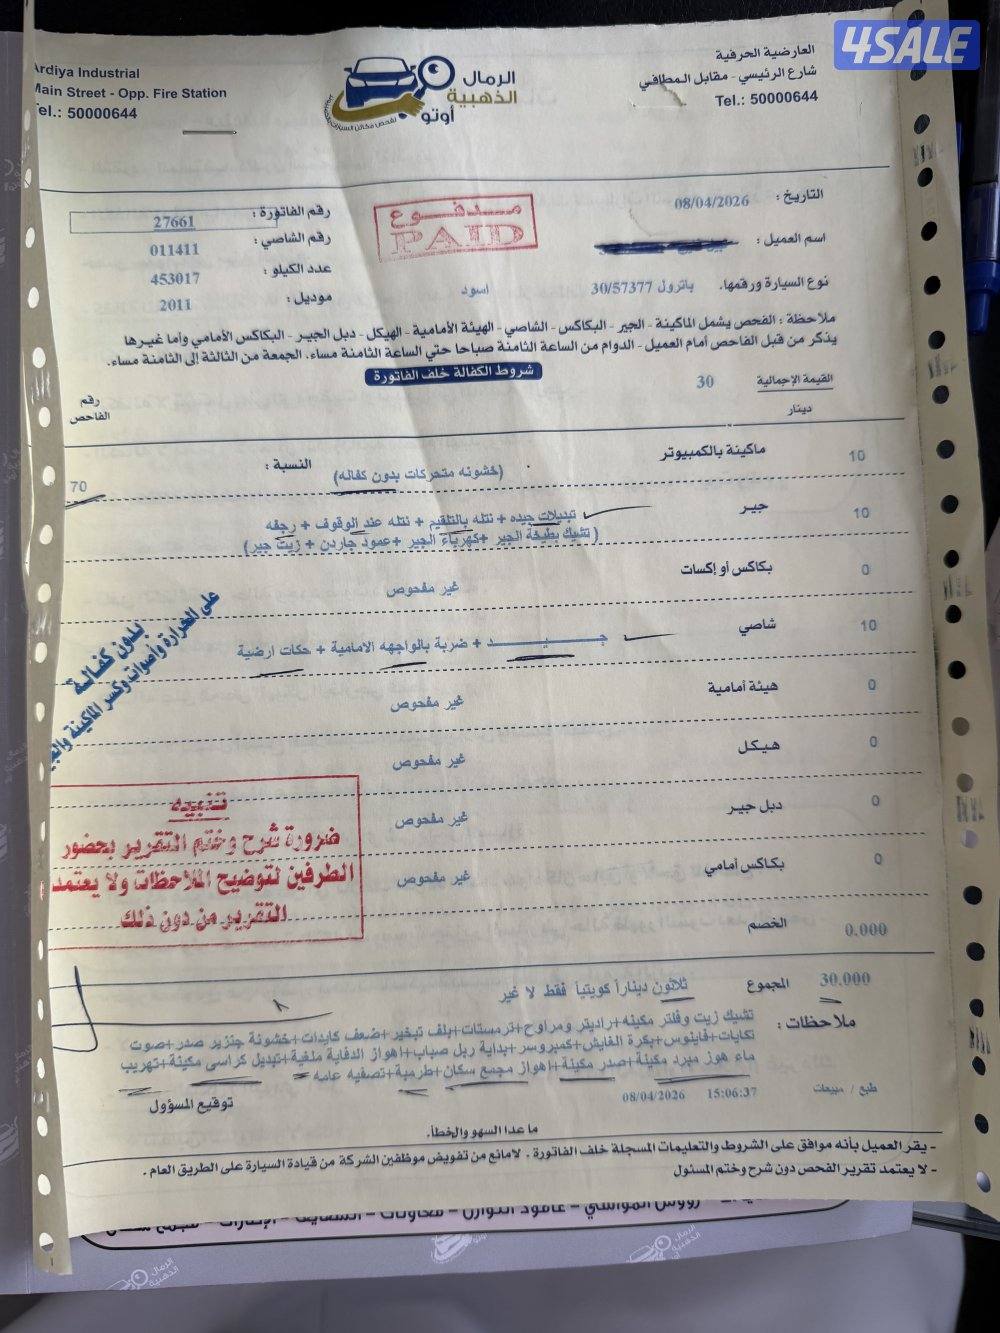 4SALE
Ardiya Industrial
Main Street - Opp. Fire Station
Tel.: 50000644
الرمال
الذهبية
أوتو
لفحص مكائن السيارات
العارضية الحرفية
شارع الرئيسي - مقابل المطافي
Tel.: 50000644
التاريخ : 08/04/2026
اسم العميل :
نوع السيارة ورقمها. باترول 30/57377 اسود
مدفوع
PAID
رقم الفاتورة : 27661
رقم الشاصي : 011411
عدد الكيلو : 453017
موديل : 2011
ملاحظة : الفحص يشمل الماكينة - الجير - البكاكس - الشاصي - الهيئة الأمامية - الهيكل - دبل الجير - البكاكس الأمامي وأما غيرها
يذكر من قبل الفاحص أمام العميل - الدوام من الساعة الثامنة صباحا حتي الساعة الثامنة مساء. الجمعة من الثالثة إلى الثامنة مساء.
شروط الكفالة خلف الفاتورة
القيمة الإجمالية 30
دينار
رقم
الفاحص
10 ماكينة بالكمبيوتر (خشونه متحركات بدون كفاله) النسبة : 70
10 جير تبديلات جيده + نتله بالتلقيم + نتله عند الوقوف + رجفه
( تشيك بطيخة الجير +كهرباء الجير +عمود جاردن + زيت جير)
0 بكاكس أو إكسات غير مفحوص
10 شاصي جيد + ضربة بالواجهه الامامية + حكات ارضية
0 هيئة أمامية غير مفحوص
0 هيكل غير مفحوص
0 دبل جير غير مفحوص
0 بكاكس أمامي غير مفحوص
0.000 الخصم
بدون كفالة
على الحرارة وأصوات وكسر الماكينة
تنبيه
ضرورة شرح وختم التقرير بحضور
الطرفين لتوضيح الملاحظات ولا يعتمد
التقرير من دون ذلك
30.000 المجموع ثلاثون ديناراً كويتياً فقط لا غير
ملاحظات : تشيك زيت وفلتر مكينه+راديتر ومراوح+ترمستات+بلف تبخير+ضعف كايدات+خشونة جنزير صدر+صوت
تكايات+فاينوس+بكرة القايش+كمبروسر+بداية ربل صباب+اهواز الدفاية ملغية+تبديل كراسي مكينة+تهريب
ماء هوز مبرد مكينة+صدر مكينة+اهواز مجمع سكان+طرمبة+تصفيه عامه
طبع / مبيعات 15:06:37 08/04/2026
توقيع المسؤول
ما عدا السهو والخطأ.
- يقر العميل بأنه موافق على الشروط والتعليمات المسجلة خلف الفاتورة . لامانع من تفويض موظفين الشركة من قيادة السيارة على الطريق العام .
- لا يعتمد تقرير الفحص دون شرح وختم المسئول